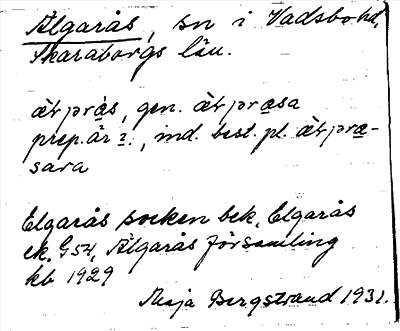 Älgarås, sn i Vadsbo hd,
Skaraborgs län.
gen.
prep. ind. best. pl.
sara
Elgarås socken bek. Elgarås
ek. G54, Älgarås församling
kb 1929
Maja Bergstrand 1931.